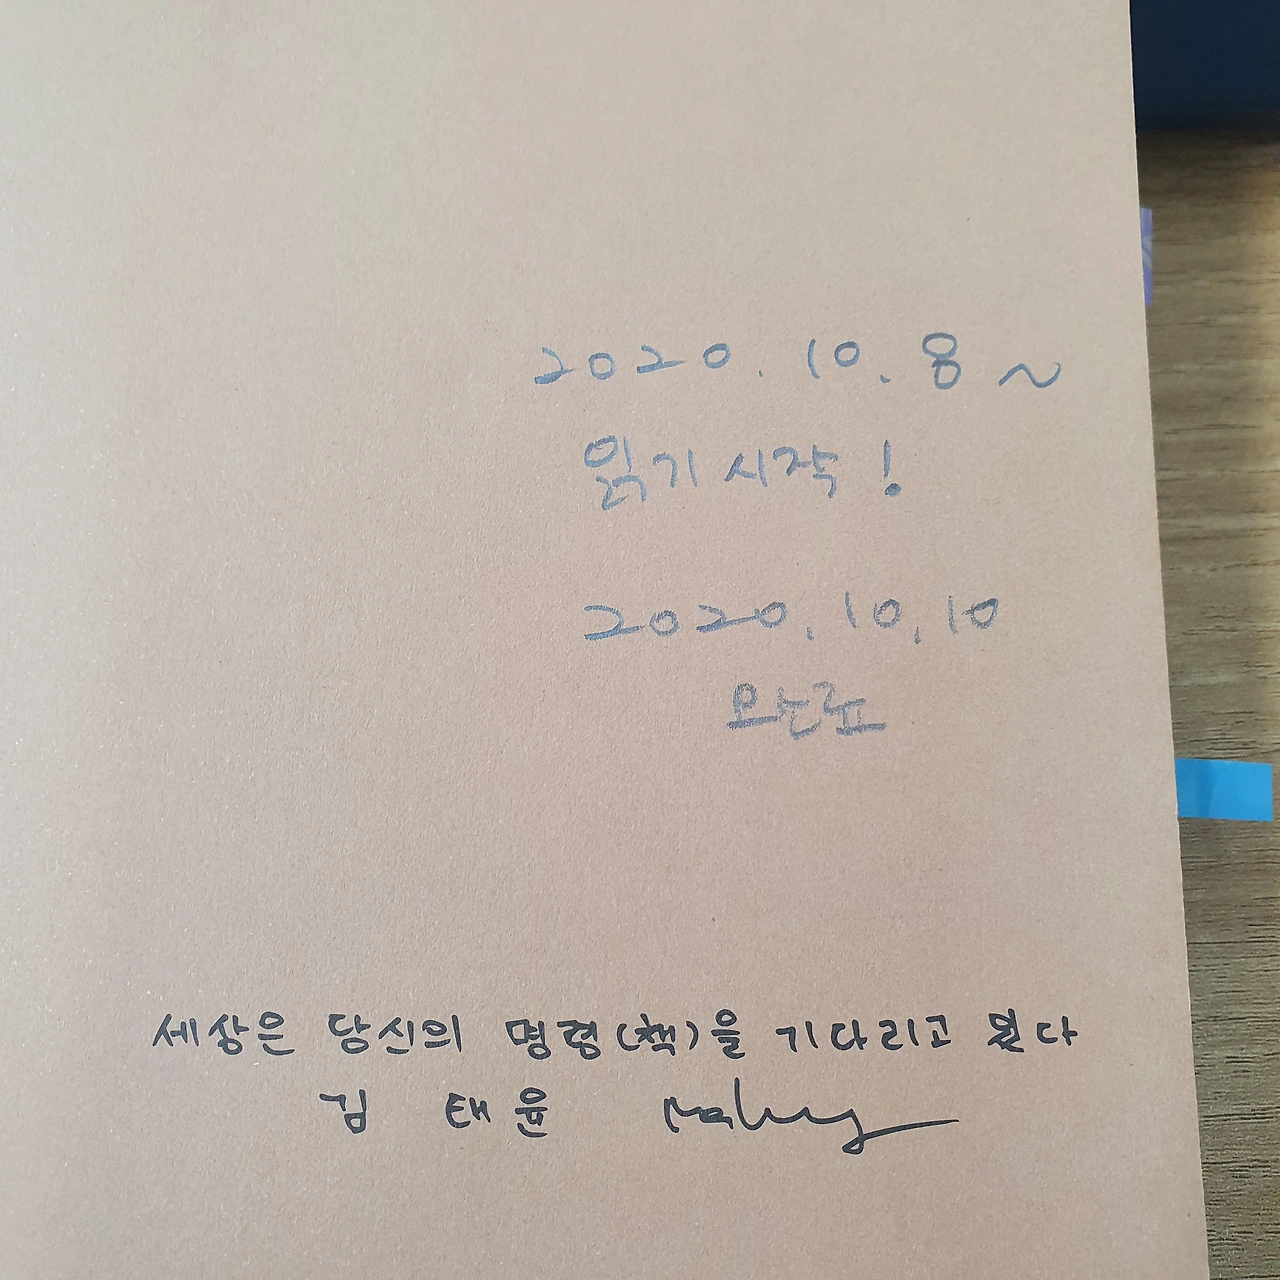 2020. 10. 8 ~
읽기 시작 !
2020. 10. 10
완료
세상은 당신의 명령(책)을 기다리고 있다
김 태 윤